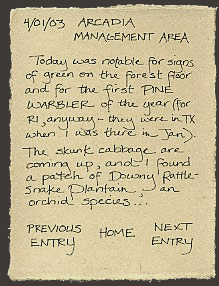 4/01/03 ARCADIA
MANAGEMENT AREA
Today was notable for signs
of green on the forest floor
and for the first PINE
WARBLER of the year (for
RI, anyway - they were in TX
when I was there in Jan).
The skunk cabbage are
coming up, and I found
a patch of Downy Rattle-
snake Plantain, an
orchid species...
PREVIOUS HOME NEXT
ENTRY ENTRY